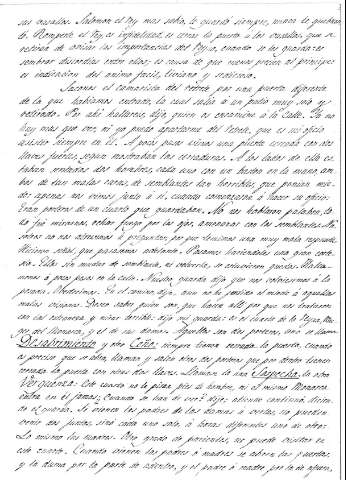 sus vasallos. Salomon el Rey mas sabio, le guardó siempre, nunca le quebran-
to. Romperle el Rey es infidelidad, es cerrar la puerta a los vasallos, que se
retiran de avisar las importancias del Reyno, cuando se les guarda es
sembrar discordias entre ellos; es causa de que menos precien al principe
es indicacion del animo facil, liviano y
Sacónos el camarista del retrete por una puerta diferente
de la que habiamos entrado, la cual salia a un patio muy solo y
retirado. Por ahi hallareis, dijo, quien os encamine a la calle. Yo no
hay mas que ver, ni yo puedo apartarme del Retrete, que es mi oficio
asistir siempre en él. A pocos pasos vimos una puerta cerrada con dos
llaves fuertes, segun mostraban las cerraduras. A los lados de ella es-
taban sentados dos hombres, cada uno con un baston en la mano, am-
bos de tan malas caras, de semblantes tan horribles, que ponian mie-
do: apenas nos vieron junto a si, cuando comenzaron a hacer su oficio.
Eran porteros de un cuarto que guardaban. No nos hablaron palabra, to-
do fue mirarnos, echar fuego por los ojos, amenazar con los semblantes. No-
sotros no nos atrevimos a preguntar, por que temimos una muy mala respuesta.
Hicieron señas, que pasasemos adelante. Pasamos haciendoles una gran corte-
sia. Ellos sin mudar de semblante, ni volverla, se estuvieron quedos. Halla-
monos a pocos pasos en la calle. Nuestro guarda dijo que nos volviesemos a la
posada. Obedecimos. En el camino, dijo, aun no he perdido el miedo a aquellas
malas visiones. Deseo saber, quien son, que hacen alli, por que nos trataron
con tal estrañeza, y mirar terrible; dijo mi guarda: es el cuarto de la Reyna, Mu-
ger del Monarca, y el de sus damas. Aquellos son dos porteros, uno se llama
Desabrimiento y otro Ceño; siempre tienen cerrada la puerta, cuando
es preciso que se abra, llaman y salen otros dos porteros que por dentro tienen
cerrada la puerta con otras dos llaves. Llaman la una Sospecha, la otra
Verguenza: Este cuarto no le pisan pies de hombre, ni el mismo Monarca
entra en él jamas; Cuando se han de ver? dije; adonde continuó, dicien-
do el guarda. Si vienen los padres de las damas a verlas, no pueden
venir dos juntos, sino cada uno solo, a horas diferentes uno de otro.
Lo mismo las madres. Otro grado de parientes, no puede visitar en
este cuarto. Cuando vienen los padres o madres se abren las puertas,
y la dama por la parte de adentro, y el padre o madre por la de afuera,